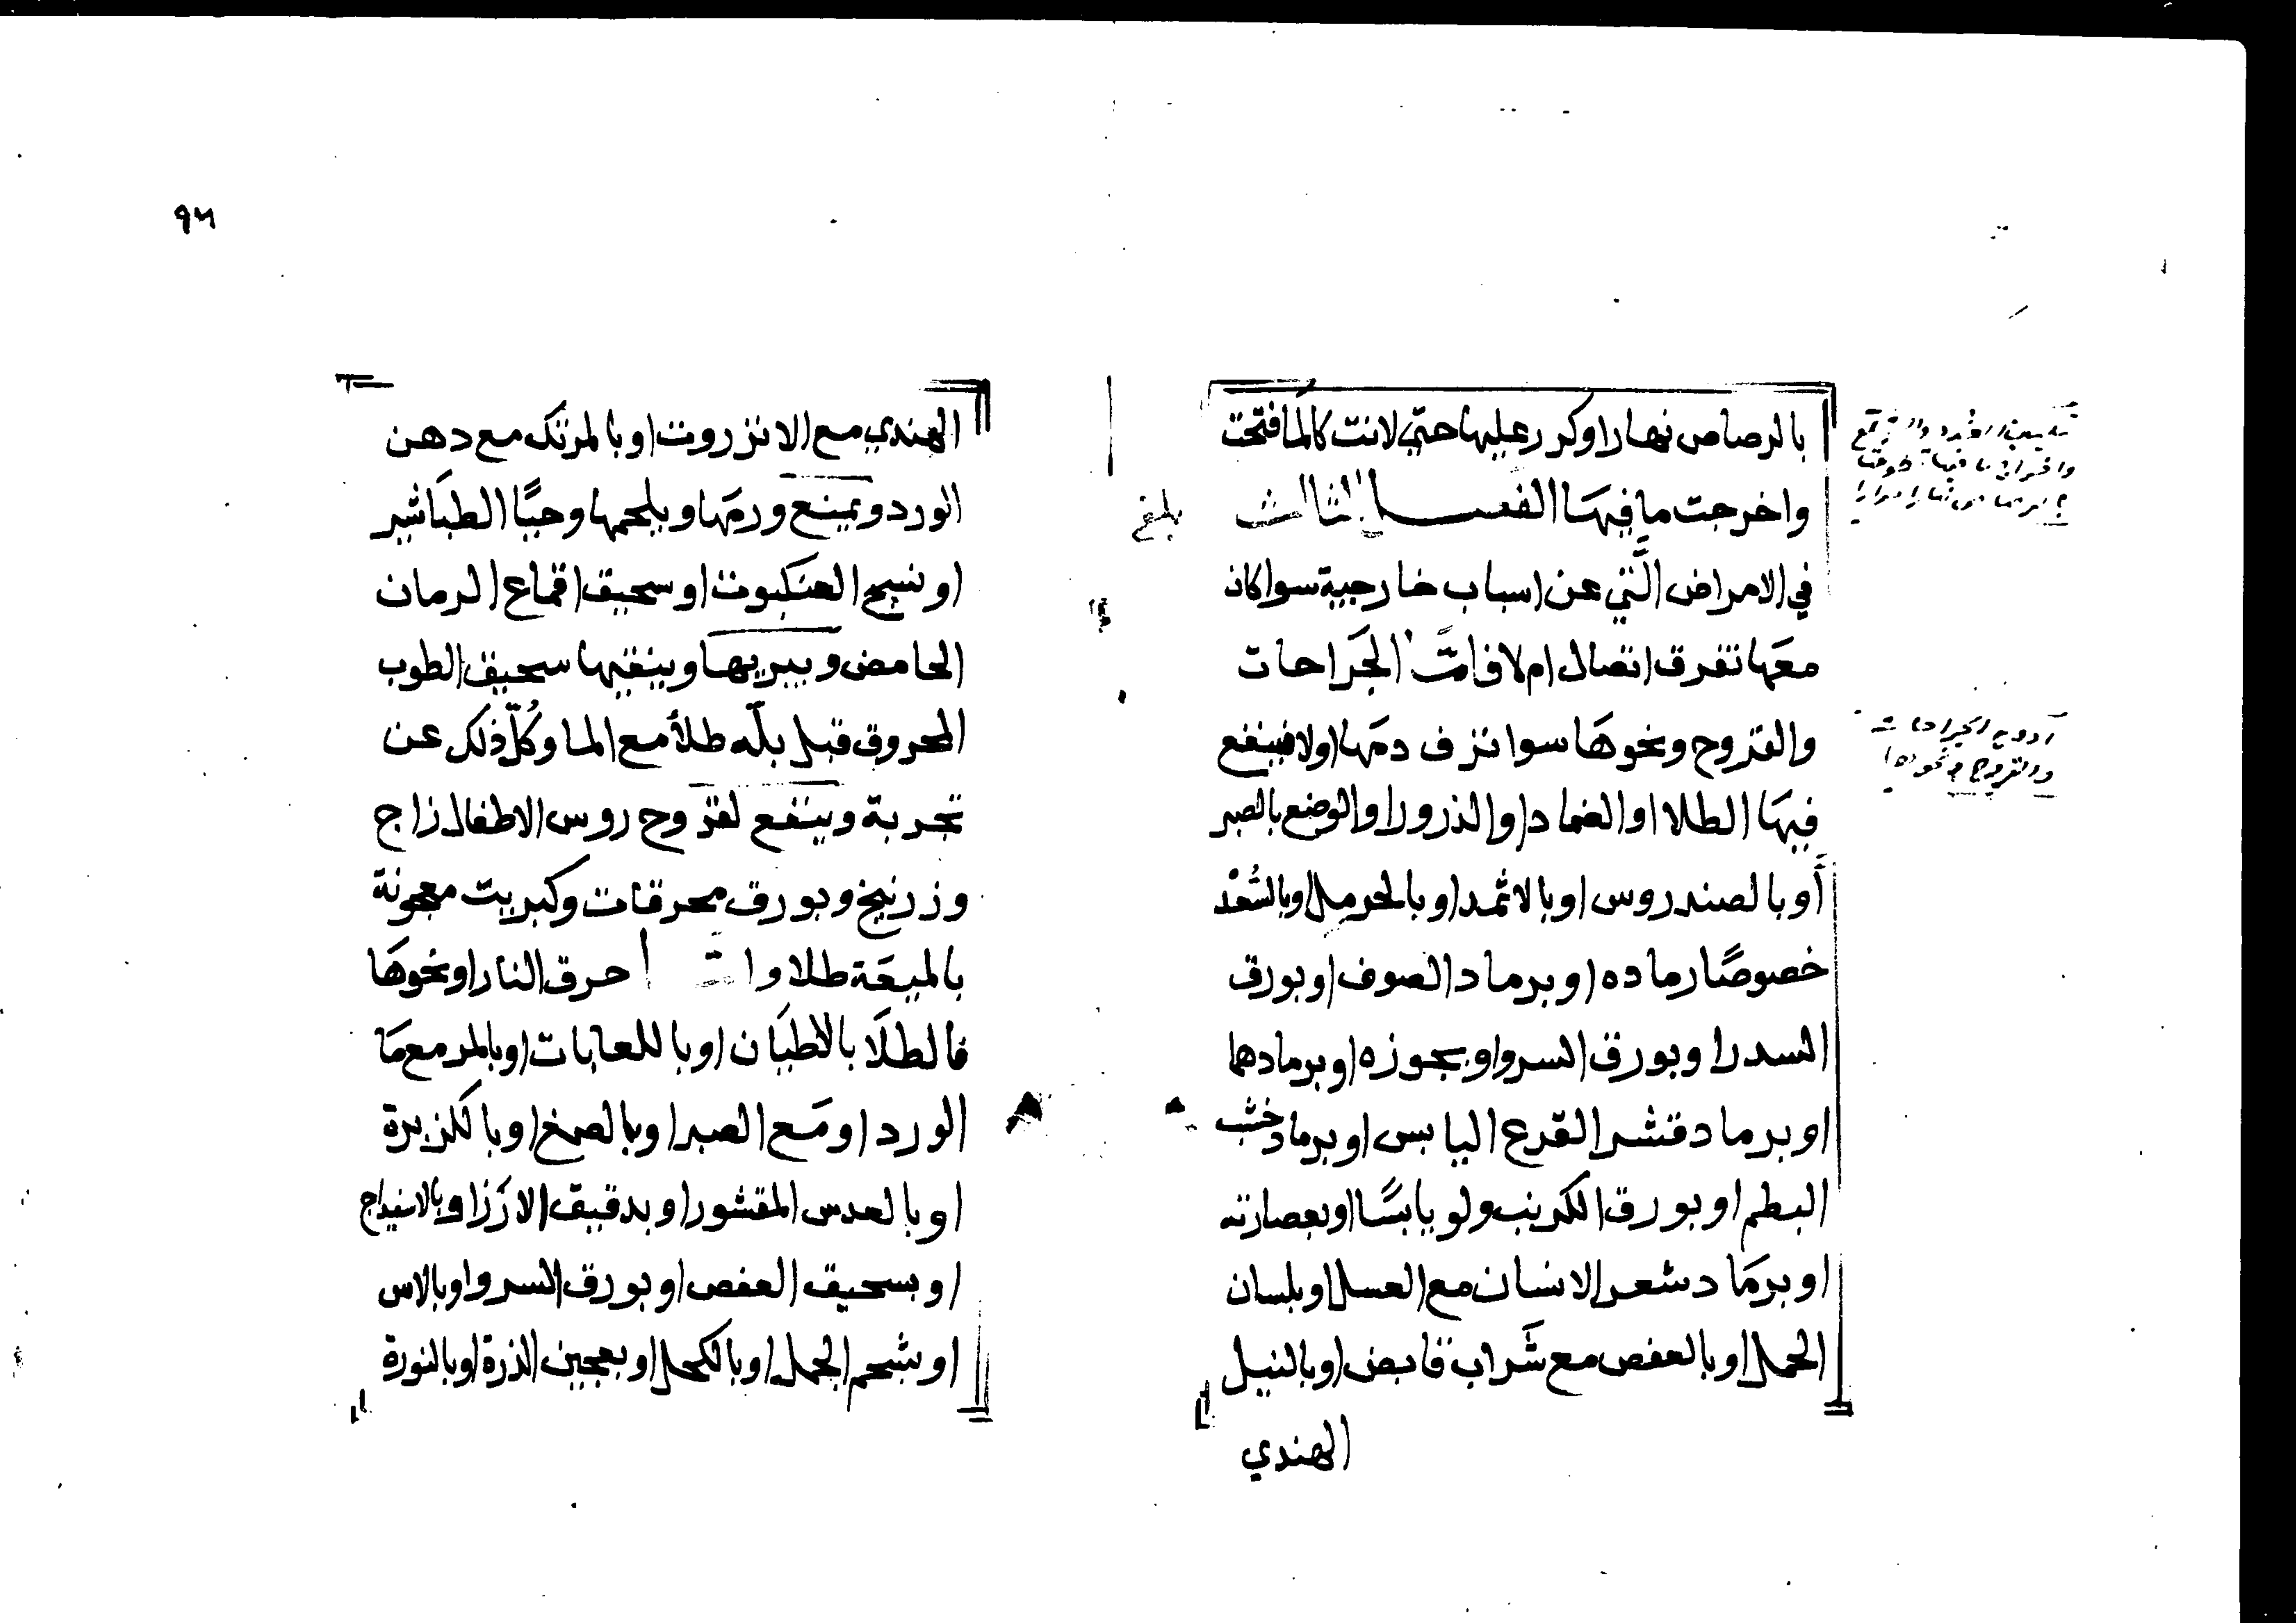 بالرصاص نهارا وكرر عليها حتي لانت كالما فتحت
واخرجت ما فيها الفصل الثالث
بلغ
في الامراض الَّتي عن اسباب خارجية سوا كان
معها تفرق اتصال ام لا فامَّا الجَراحات
والقروح ونحوها سوا نزف دمها اولا فينفع
فيها الطلا او الضماد او الذرور او الوضع بالصبر
أو بالصندروس او بالاثمد او بالحرمل او بالسُعْد
خصوصًا رماده او برماد الصوف او بورق
السدر او بورق السرو او بجوزه او برمادهما
او برماد قشر القرع اليابس او برماد خشب
البطم او بورق الكرنب ولو يابسًا او بعصارته
او برماد شعر الانسان مع العسل او بلسان
الحمل او بالعفص مع شَراب قابض او بالنيل
الهندي
ادوية الجراحات
والقروح ونحوها
٩٦
الهندي مع الانزروت او بالمرتك مع دهن
الورد ويمنع ورمها ويلحمها وحيًا الطباشير
او نسج العنكبوت او سحيق اقماع الرمان
الحامض ويبريها وينقيها سحيق الطوب
المحروق قبل بلّه طلأ مع الما وكُلّ ذلك عن
تجربة وينفع لقروح روس الاطفال زاج
وزرنيخ وبورق محرقات وكبريت معجونة
بالميعة طلا وا حرق النار او نحوها
فالطلَا بالاطيان او باللعابات او بالمر مع مَا
الورد او مَع الصبر او بالصمغ او بالكزبرة
او بالعدس المقشور او بدقيق الارز او بالاسفيداج
او بسحيق العفص او بورق السرو او بالاس
او بشحم الجمل او بالكحل او بعجين الذرة او بالنورة